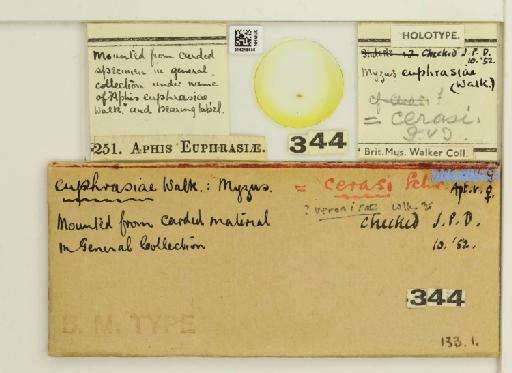 Mounted from carded
specimen in general
collection under name
of "Aphis euphrasiae
Walk." and bearing label.
251. APHIS EUPHRASIÆ.
344
HOLOTYPE.
Checked J.P.D.
10.'52.
Myzus euphrasiae
(Walk.)
= cerasi.
Brit. Mus. Walker Coll.
euphrasiae Walk.: Myzus. = cerasi
Apt. v. ♀.
? veronicae Walk.
Mounted from carded material checked J.P.D.
in General Collection 10.'52.
344
B. M. TYPE
133.1.